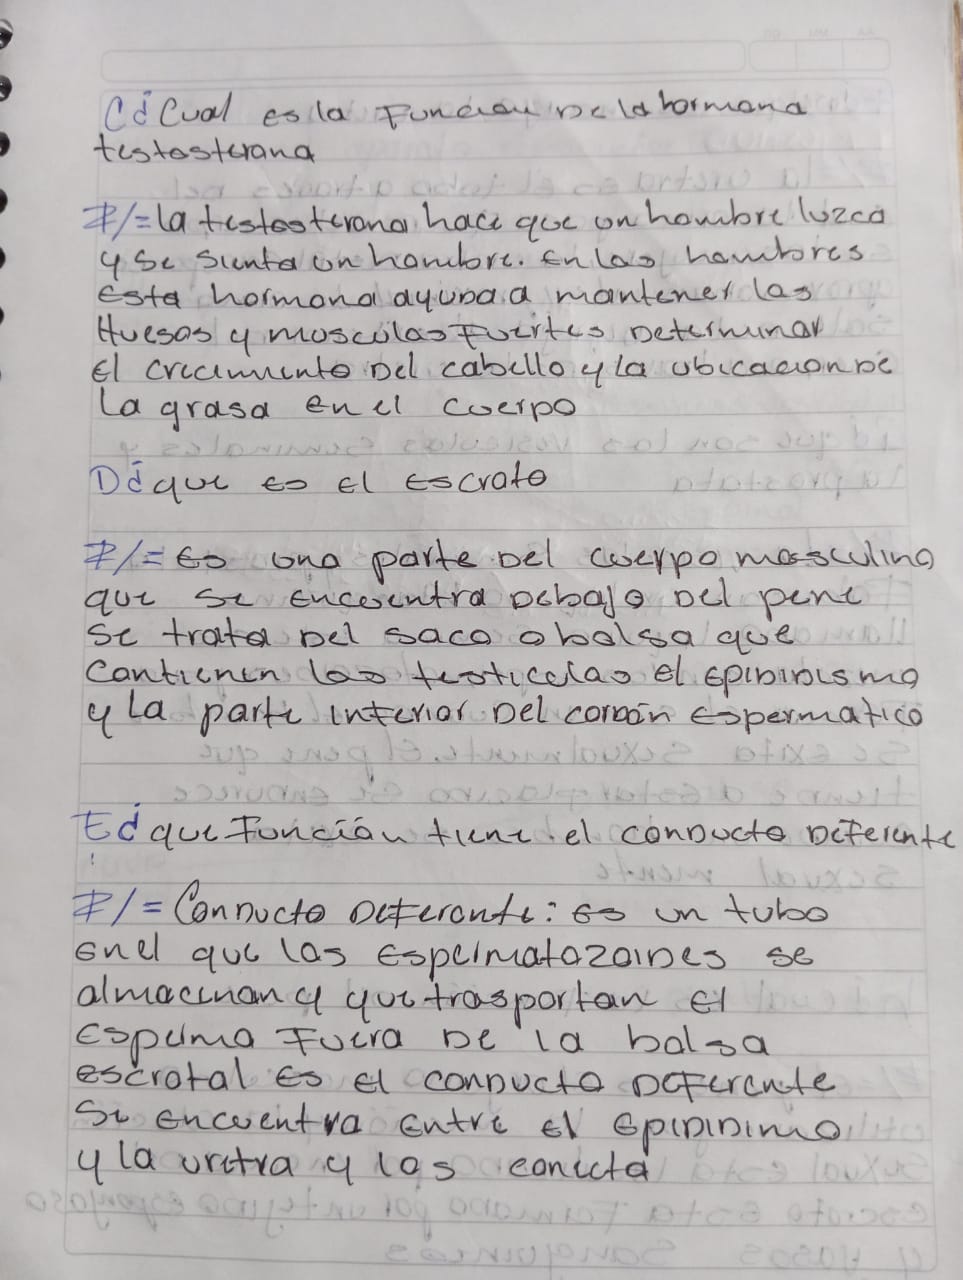 C ¿Cual es la Función De la hormona
testosterona
R/= la testosterona hace que un hombre luzca
y Se Sienta un hombre. En los hombres
Esta hormona ayuda a mantener los
Huesos y musculos Fuertes Determinar
El crecimiento Del cabello y la ubicacion De
La grasa en el cuerpo
D ¿que es el Escroto
R/= Es una parte Del cuerpo masculino
que se encuentra Debajo Del pene
Se trata Del saco o bolsa que
Contienen los testiculos el EpiDiDismo
y La parte interior Del cordón Espermatico
E ¿que Función tiene el conDucto DeFerente
R/= ConDucto DeFerente: Es un tubo
En el que las Espermatozoides se
almacenan y que trasportan El
Esperma Fuera De la bolsa
escrotal Es el conDucto DeFerente
Se encuentra Entre El EpiDiDimo
y la uretra y los conecta